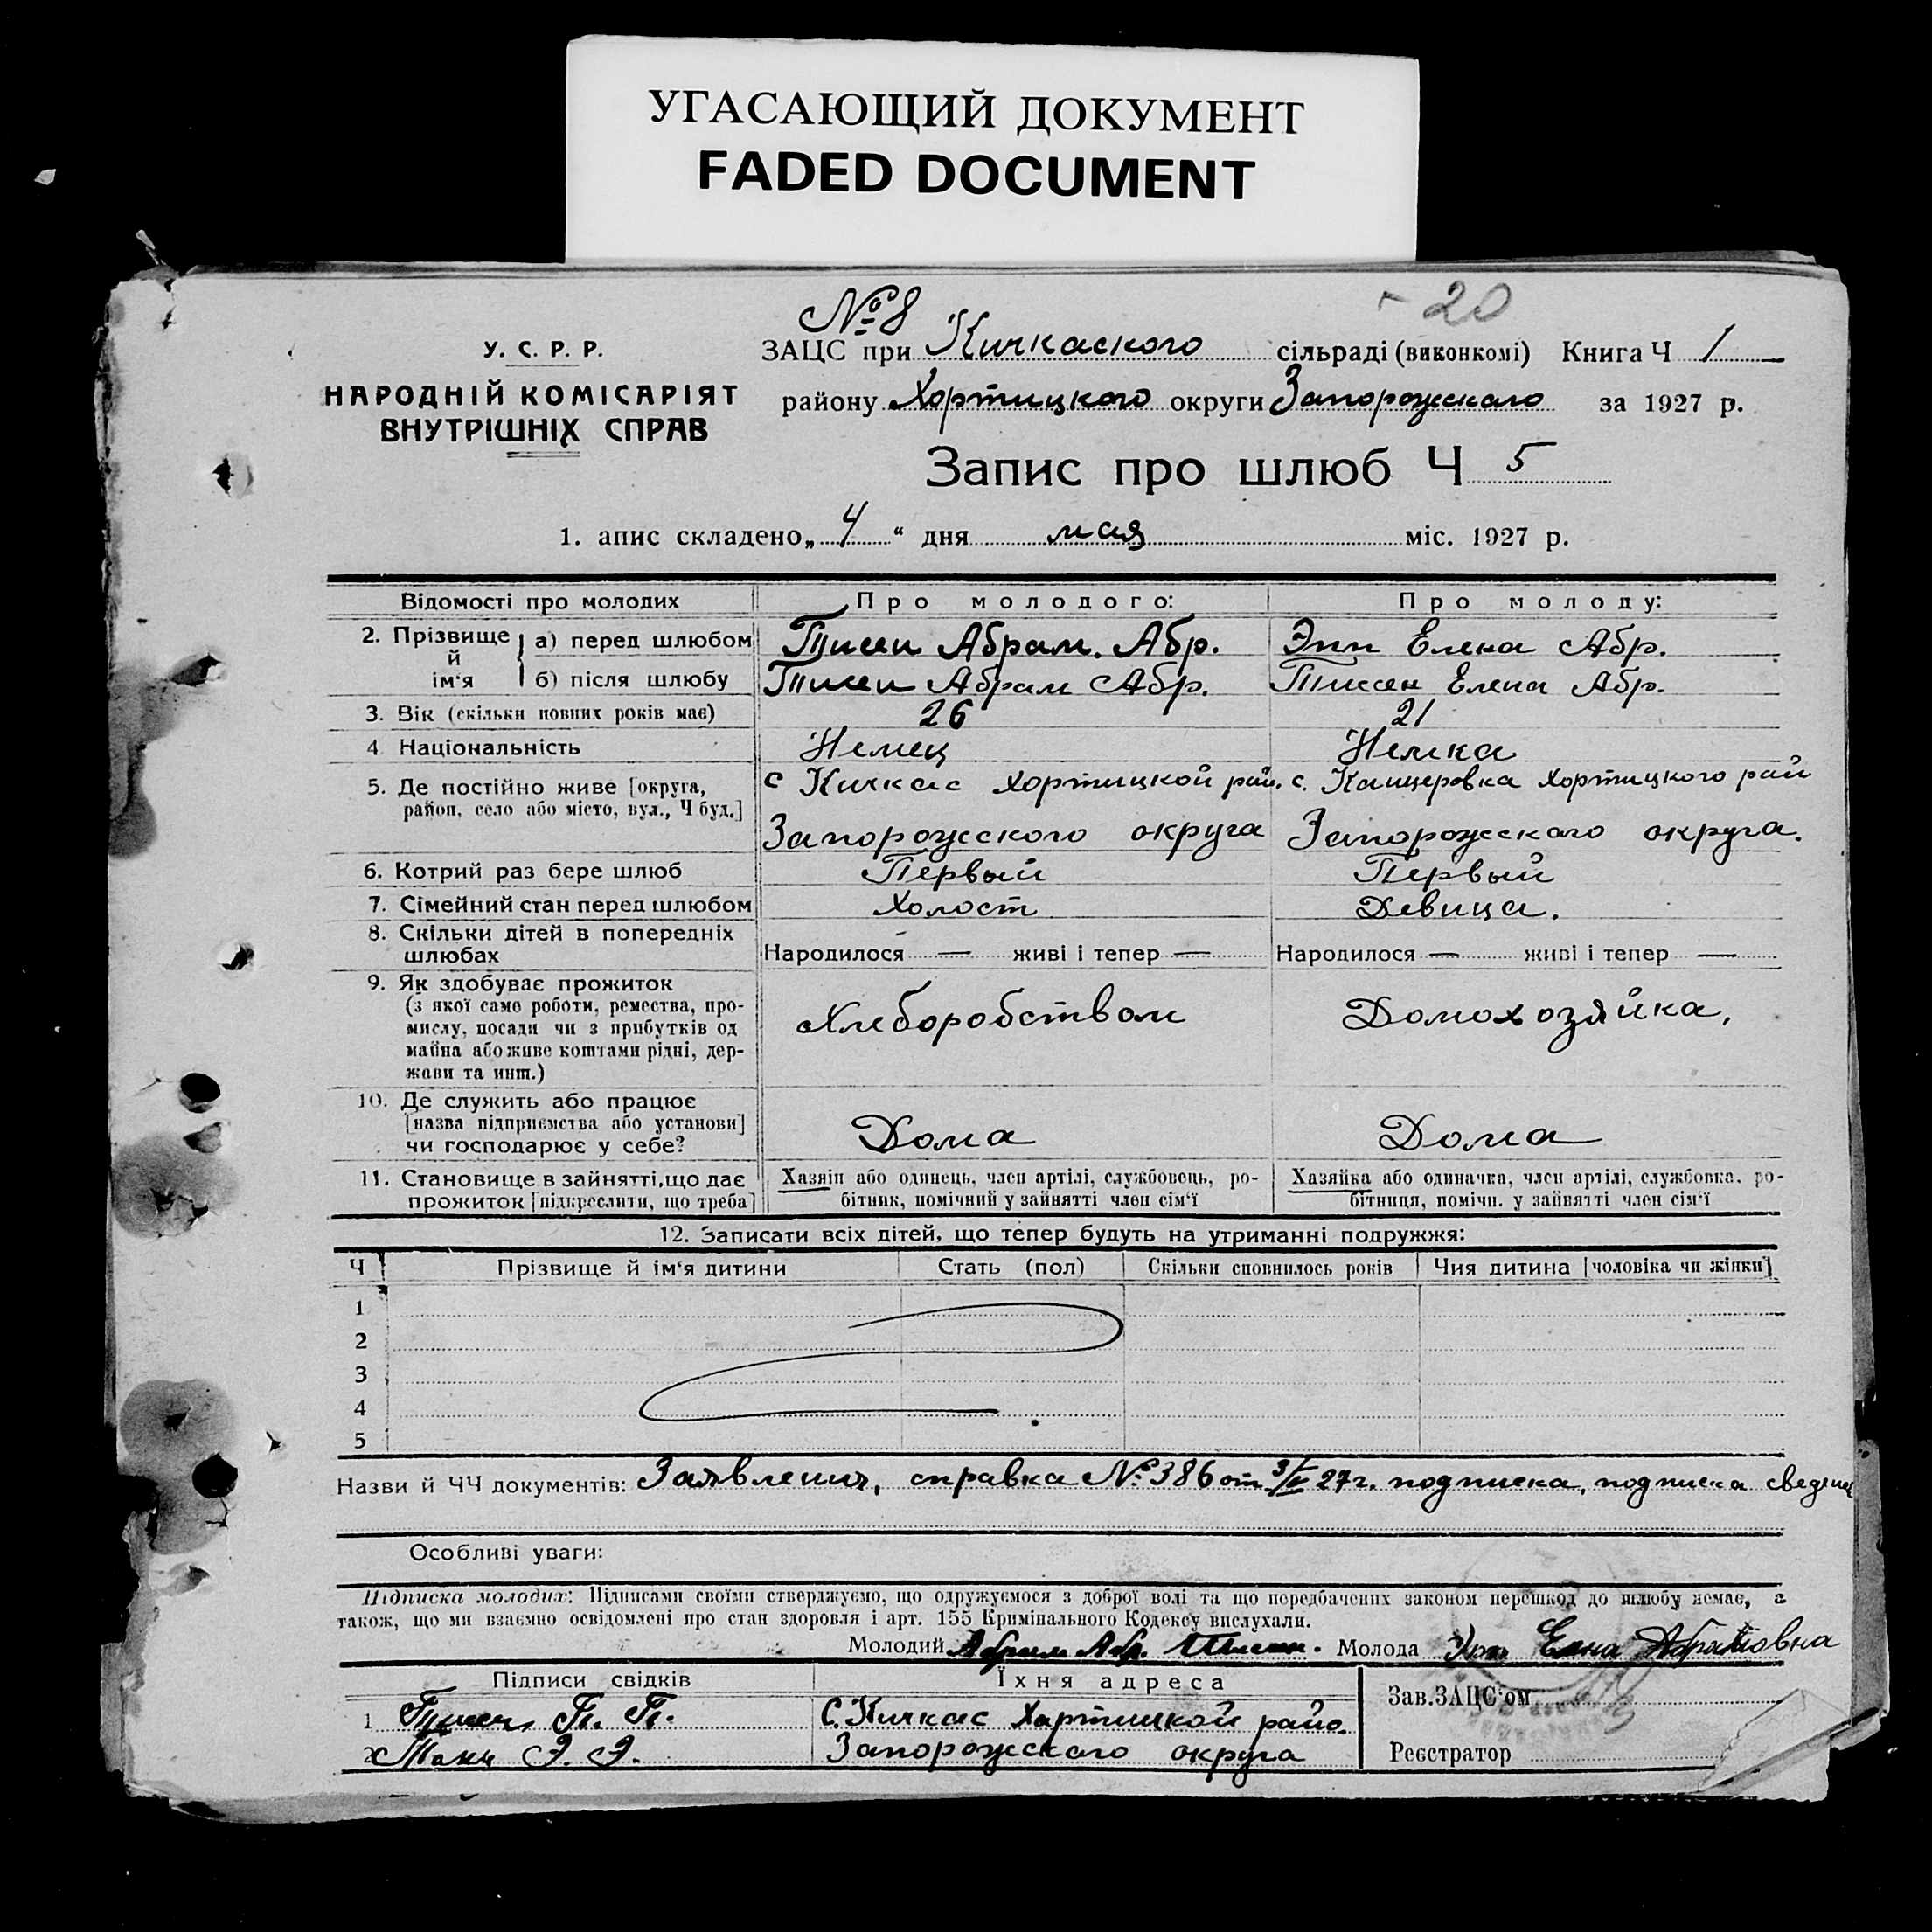 УГАСАЮЩИЙ ДОКУМЕНТ
FADED DOCUMENT
№ 8
20
У. С. Р. Р.
НАРОДНІЙ КОМІСАРІЯТ
ВНУТРІШНІХ СПРАВ
ЗАЦС при Кичкаского сільраді (виконкомі) Книга Ч 1
району Хортицкого округи Запорожскаго за 1927 р.
Запис про шлюб Ч 5
1. апис складено „ 4 “ дня мая міс. 1927 р.
Відомості про молодих Про молодого: Про молоду:
2. Прізвище й ім‘я
а) перед шлюбом Тисен Абрам. Абр. Эпп Елена Абр.
б) після шлюбу Тисен Абрам Абр. Тиссен Елена Абр.
3. Вік (скільки повних років має) 26 21
4 Національність Немец Немка
5. Де постійно живе [округа, район, село або місто, вул., Ч буд.]
с Кичкас Хортицкой рай. с. Канцеровка Хортицкого рай
Запорожского округа Запорожскаго округа.
6. Котрий раз бере шлюб Первый Первый
7. Сімейний стан перед шлюбом Холост Девица.
8. Скільки дітей в попередніх
шлюбах Народилося — живі і тепер — Народилося — живі і тепер —
9. Як здобуває прожиток
(з якої саме роботи, ремества, про-
мислу, посади чи з прибутків од
майна або живе коштами рідні, дер-
жави та инш.)
Хлеборобством Домохозяйка,
10. Де служить або працює
[назва підприємства або установи]
чи господарює у себе?
Дома Дома
11. Становище в зайнятті, що дає
прожиток [підкреслити, що треба]
Хазяїн або одинець, член артілі, службовець, ро-
бітник, помічний у зайнятті член сім‘ї
Хазяйка або одиначка, член артілі, службовка. ро-
бітниця, помічн. у зайнятті член сім‘ї
12. Записати всіх дітей, що тепер будуть на утриманні подружжя:
Ч Прізвище й ім‘я дитини Стать (пол) Скільки сповнилось років Чия дитина [чоловіка чи жінки]
1
2
3
4
5
Назви й ЧЧ документів: Заявления, справка № 386 от 3/V 27 г. подписка, подписка
Особливі уваги:
Підписка молодих: Підписами своїми стверджуємо, що одружуємося з доброї волі та що передбачених законом перешкод до шлюбу немає, а
також, що ми взаємно освідомлені про стан здоровля і арт. 155 Кримінального Кодексу вислухали.
Молодий Абрам Абр. Тисен. Молода Эпп Елена Абрамовна
Підписи свідків Їхня адреса
1 Тисен П. П. С. Кичкас Хортицкой райо.
Э. Э. Запорожскаго округа
Зав. ЗАЦС‘ом
Реєстратор